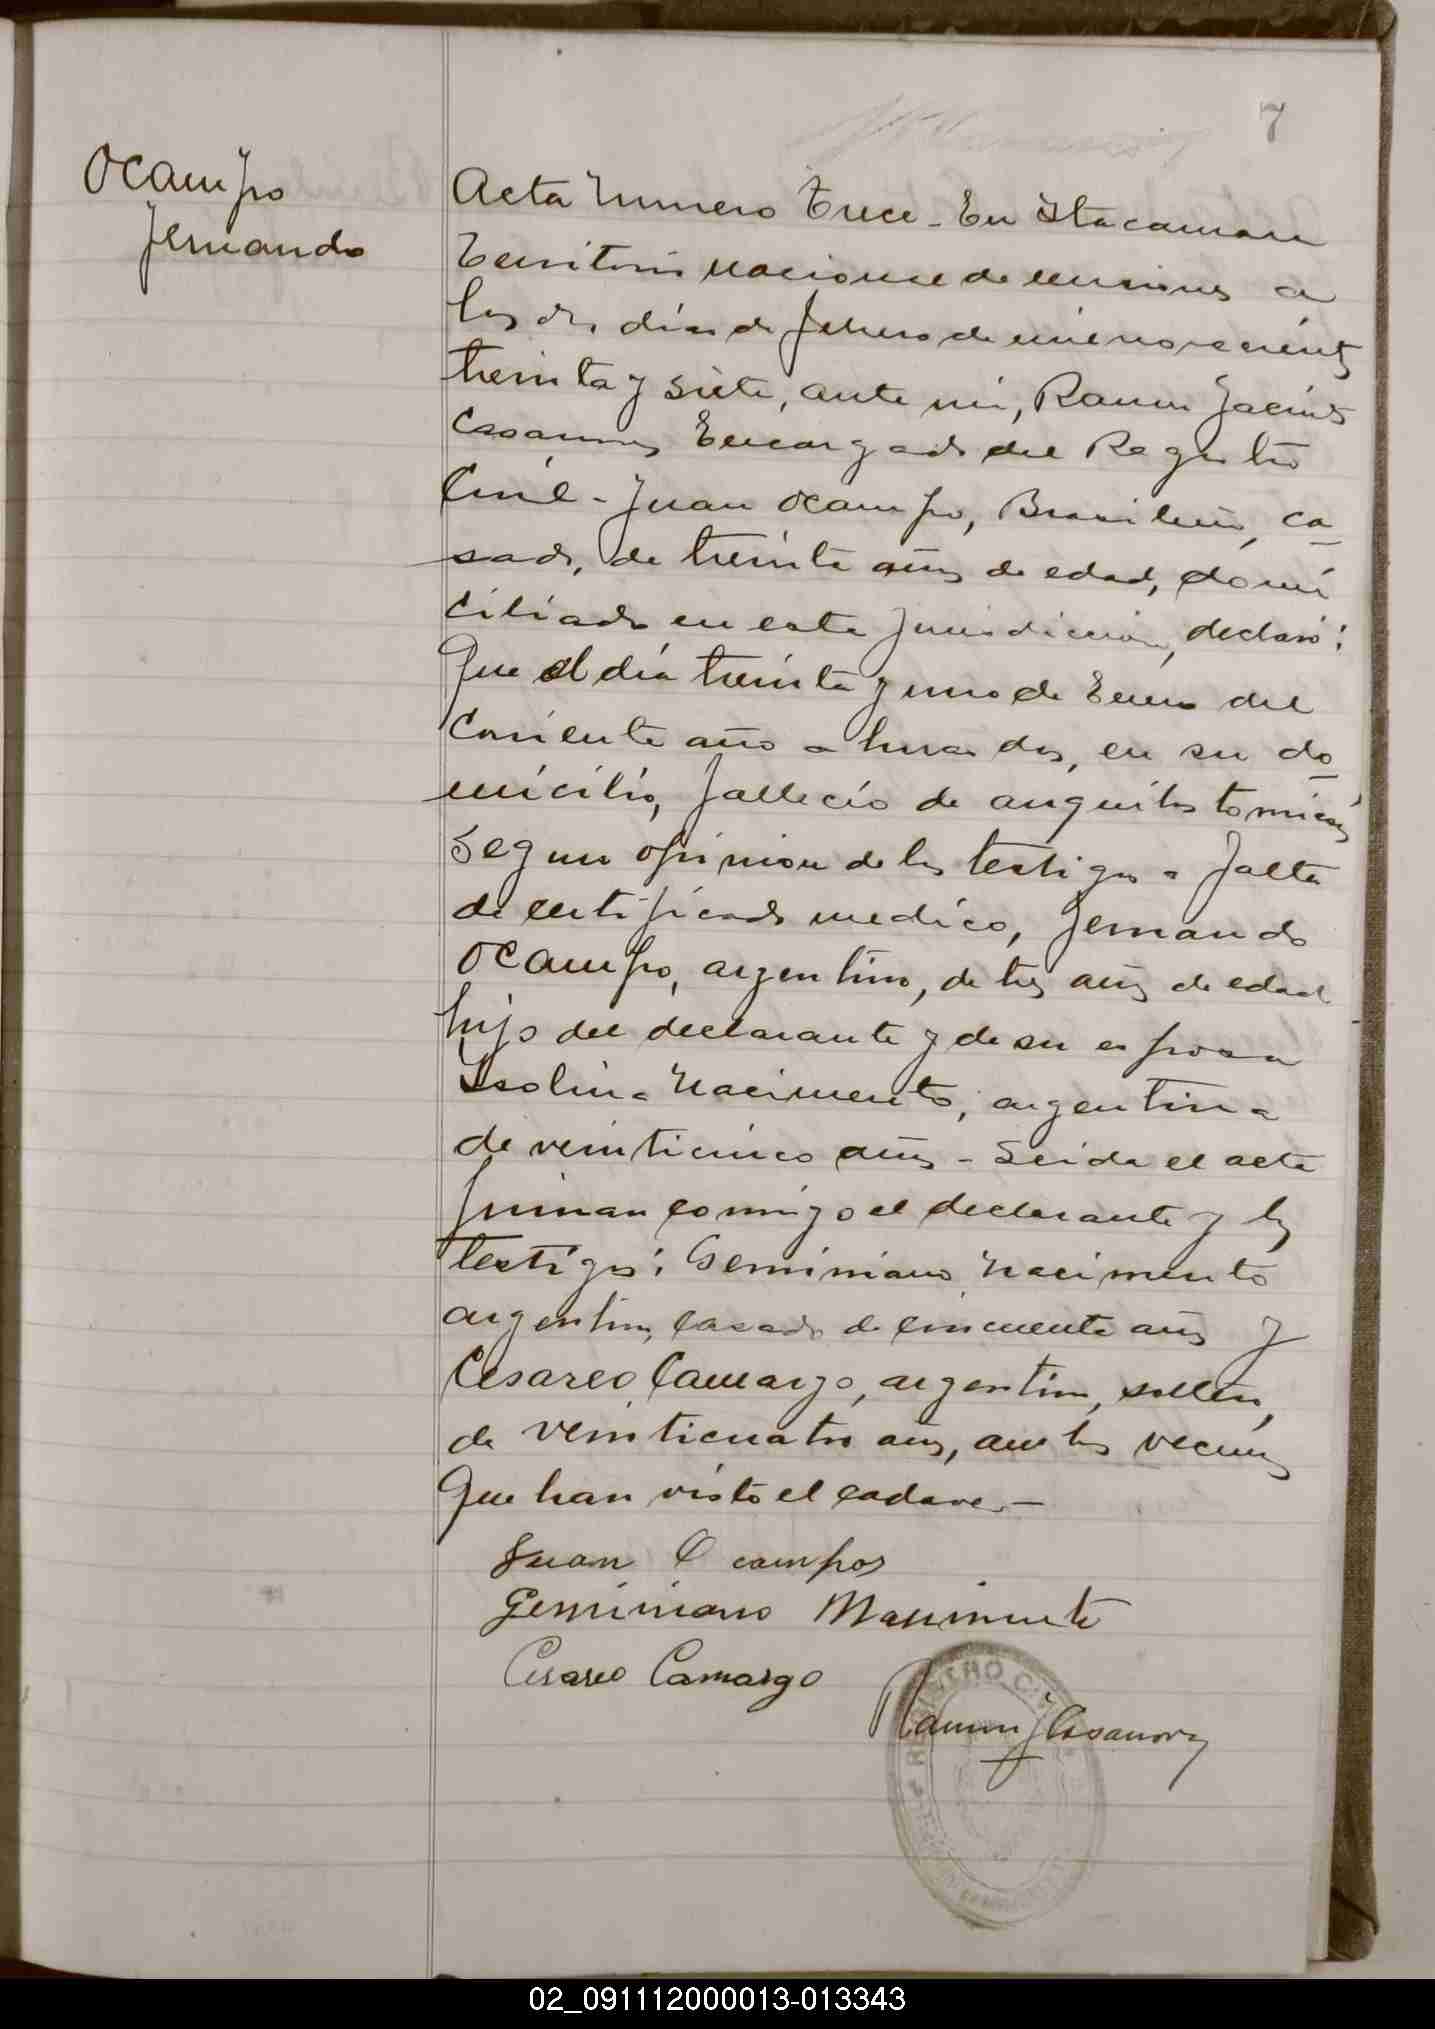 7
Ocampo
Fernando
Acta Numero Trece - En Itacaruare
Territorio nacional de Misiones a
los dos dias de Febrero de mil novecientos
treinta y siete, ante mi, Ramon Jacinto
Casanova Encargado del Registro
Civil - Juan Ocampo, Brasileño, ca
sado, de treinta años de edad, domi
ciliado en esta jurisdiccion, declaró:
Que el día treinta y uno de Enero del
corriente año a horas dos, en su do
micilio, falleció de
Segun opinion de los testigos a falta
de certificado medico, Fernando
Ocampo, argentino, de tres años de edad
hijo del declarante y de su esposa
Isolina Nacimento, argentina
de veinticinco años - Leida el acta
firman conmigo el declarante y los
testigos: Geminiano Nacimento
argentino, casado de cincuenta años y
Cesareo Camargo, argentino, soltero,
de veinticuatro años, ambos vecinos
Que han visto el cadaver -
Juan Ocampos
Geminiano Nasimento
Cesareo Camargo
Ramon J Casanova
REGISTRO CIVIL
02_091112000013-013343